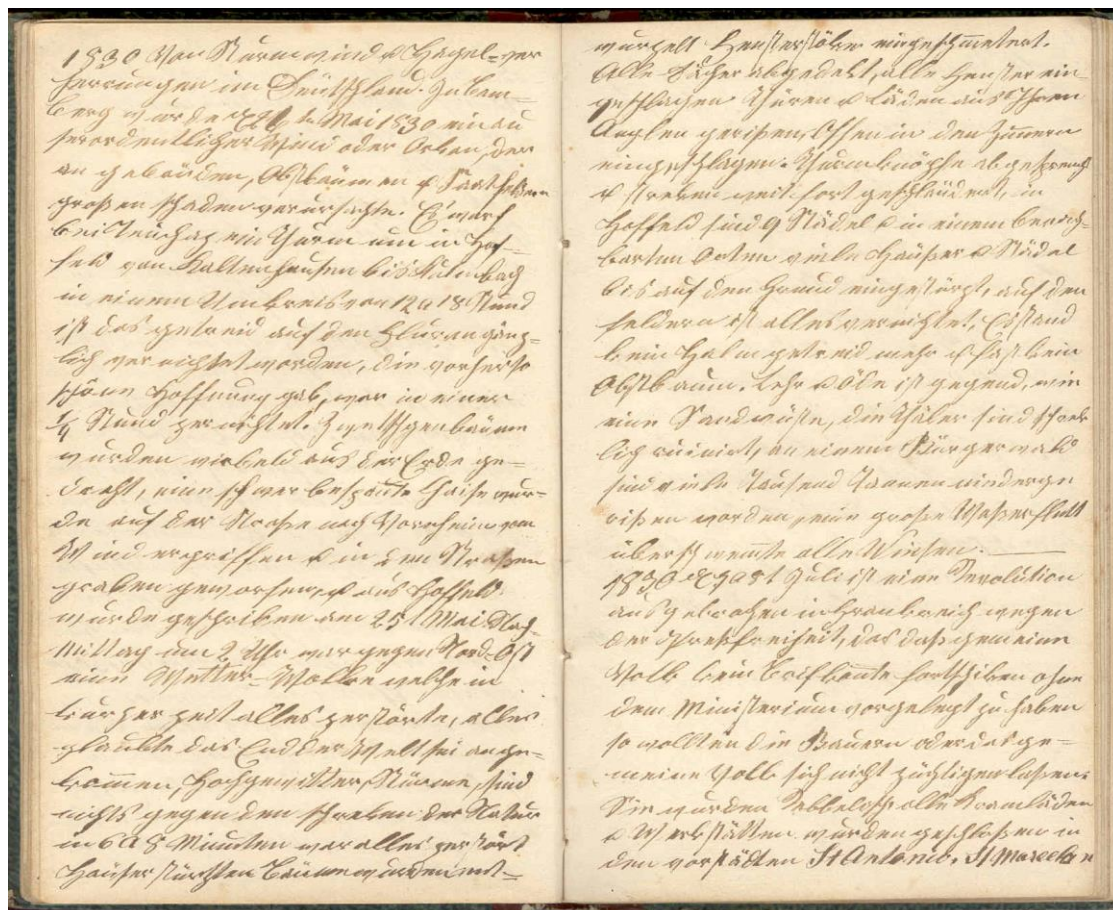 1830 Von Sturmwind & Hagel=ver
herrungen im Deutschland. In Bam=
berg wurde Mai 1830 ein au
serordentlicher Wind oder Orkan, der
an gebäuden, Obstbäumen & Saatfeldern
großen schaden verursachte. Es warf
bei ein Thurm um in Hol=
feld von Kaltenhausen bis Kulmbach
in einem Umkreis von 12 a 18 Stund
ist das getreid auf den Fluren gänz=
lich vernichtet worden, die vorher so
schöne Hoffnung gab, war in einer
1/4 Stund zernichtet. Zwetschgenbäume
wurden wirbelnd aus der Erde ge=
dreht, eine schwer bespante Chaise wur=
de auf der Straße nach vom
Wind ergriffen & in den Straßen
graben geworfen, & aus Hollfeld
wurde geschrieben am 25t Mai Nach=
mittag um 2 Uhr war gegen Nord=Ost
eine Wetter=Wolke welche in
kurzer zeit alles zerstörte, alles
glaubte das End der Welt sei ange=
kommen, Hochgewitter, Stürme, sind
nichts gegen den schreken der Natur
in 6 a 8 Minuten war alles zerstört
Häuser stürtzten Bäume wurden ent=
wurzelt Fensterstöke eingeschmettert.
Alle Dächer abgedekt, alle Fenster ein=
geschlagen Thüren & Läden aus Ihren
Anglen gerißen, Öfen in den Zimmern
eingeschlagen. Thurmknöpfe abgesprengt
& streken weit fort geschläudert, in
Hollfeld sind 9 Städel & in einem benach=
barten Orten viele Häußer & Städel
bis auf den Grund eingestürzt, auf den
feldern ist alles vernichtet, Es stand
kein Halm getreid mehr & fast kein
Obstbaum. Lehr & Öde ist gegend, wie
eine Sandwüste, die Thäler sind schrek
lich ruinirt, an einem Bürgerwald
sind viele Tausend Tannen niederge
rißen worden, eine große Waßerfluth
überschwemte alle Wiesen.
1830 Juli ist eine Revolution
ausgebrochen in Frankreich wegen
der Preßfreiheit, das daß gemeine
Volk kein fortschiken ohne
dem Ministerium vorgelegt zu haben
so wollten die Bauern oder das ge=
meine Volk sich nicht züchtigen laßen.
Sie wurden Rebbelisch alle Kramläden
& Werkstätten wurden geschloßen in
den vorstädten St Antonio, St Marcelan